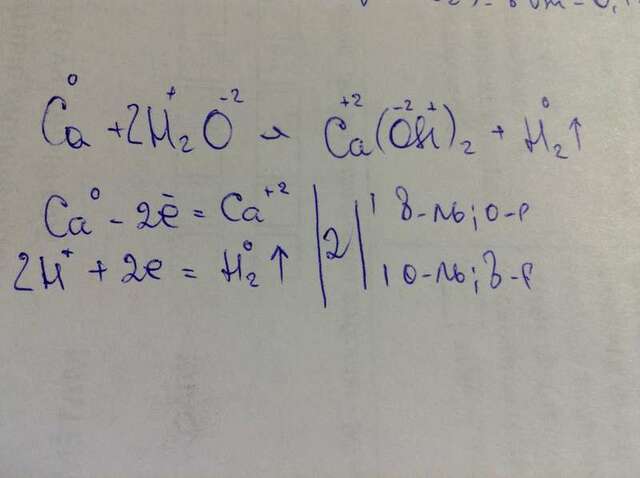 Ca⁰ + 2H₂⁺O⁻² → Ca⁺²(O⁻²H⁺)₂ + H₂⁰↑
Ca⁰ - 2ē = Ca⁺² | 2 | 1 в-ль; о-е
2H⁺ + 2e = H₂⁰↑ | | 1 о-ль; в-е